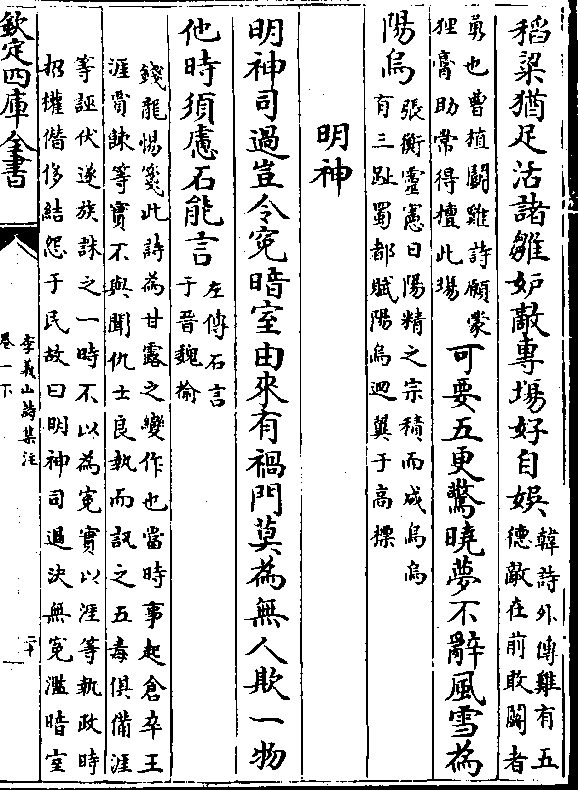 稻粱猶足活諸雛妒敵專場好自娛韓詩外傳雞有五
德敵在前敢鬬者
勇也曹植鬬雞詩願蒙
狸膏助常得擅此場可要五更驚曉夢不辭風雪為
陽烏張衡靈憲日陽精之宗積而成烏烏
有三趾蜀都賦陽烏迴翼于高摽
明神
明神司過豈令寃暗室由來有禍門莫為無人欺一物
他時須慮石能言左傳石言
于晉魏榆
錢龍惕箋此詩為甘露之變作也當時事起倉卒王
涯賈餗等實不與聞仇士良執而訊之五毒俱備涯
等誣伏遂族誅之一時不以為寃實以涯等執政時
招權僭侈結怨于民故曰明神司過決無寃濫暗室
欽定四庫全書
李義山詩集注
卷一下
二十